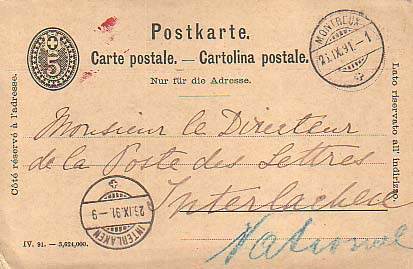 Postkarte.
Carte postale. — Cartolina postale.
Nur für die Adresse.
5
MONTREUX
23.IX.91.-1
Côté réservé à l'adresse.
Lato riservato all'indirizzo.
Monsieur le Directeur
de la Poste des Lettres
Interlachen
National
INTERLAKEN
23.IX.91.-9
IV. 91. - 3,624,000.